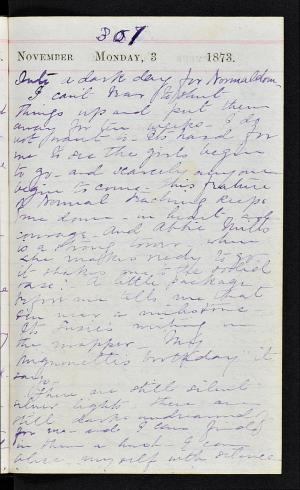 307
NOVEMBER MONDAY, 3 1873.
a dark day for Normaldom
I can't bear to shut
things up and put them
away for ten weeks. I do
not want to. It's hard for
me to see the girls begin
to go - and scarcely anyone
begin to come - this feature
of Normal teaching keeps
me down - in heart and
courage. And Abbie Mills
is a strong tower, when
she makes ready to go
it shakes me to the
base! A little package
before me tells me that
I'm near a milestone -
It's Susie's writing on
the wrapper - "My
birthday" it
says.
There are still silent
silver lights there are
still dark
for me - and I can find
in them a hush - I can
myself with silence